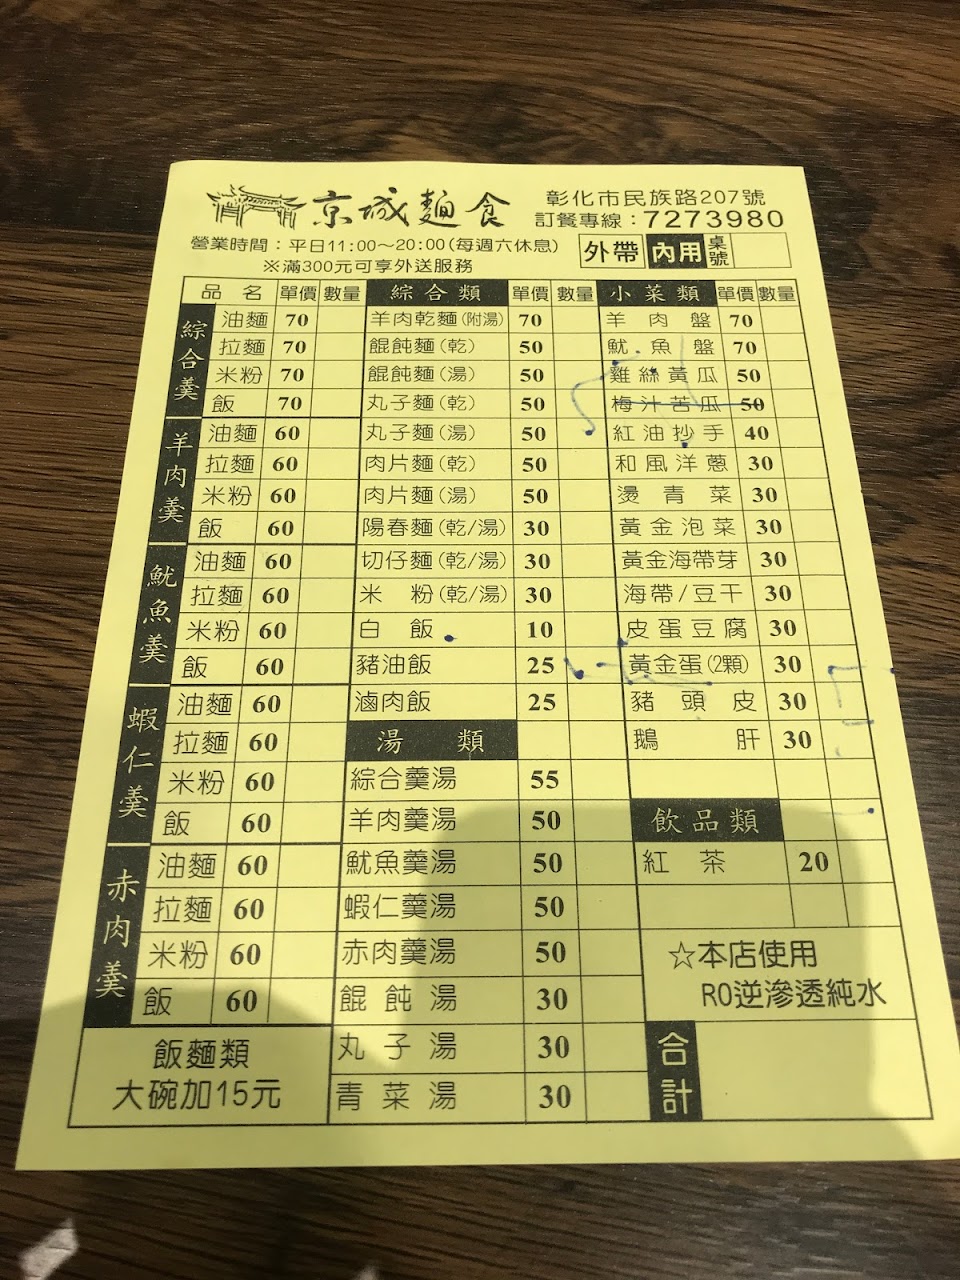 京城麵食
彰化市民族路207號
訂餐專線：7273980
營業時間：平日11:00～20:00(每週六休息)
※滿300元可享外送服務
外帶 內用 桌號
品名 單價 數量
綜合羹
油麵 70
拉麵 70
米粉 70
飯 70
羊肉羹
油麵 60
拉麵 60
米粉 60
飯 60
魷魚羹
油麵 60
拉麵 60
米粉 60
飯 60
蝦仁羹
油麵 60
拉麵 60
米粉 60
飯 60
赤肉羹
油麵 60
拉麵 60
米粉 60
飯 60
飯麵類
大碗加15元
綜合類 單價 數量
羊肉乾麵(附湯) 70
餛飩麵(乾) 50
餛飩麵(湯) 50
丸子麵(乾) 50
丸子麵(湯) 50
肉片麵(乾) 50
肉片麵(湯) 50
陽春麵(乾/湯) 30
切仔麵(乾/湯) 30
米粉(乾/湯) 30
白飯 10
豬油飯 25
滷肉飯 25
湯類
綜合羹湯 55
羊肉羹湯 50
魷魚羹湯 50
蝦仁羹湯 50
赤肉羹湯 50
餛飩湯 30
丸子湯 30
青菜湯 30
小菜類 單價 數量
羊肉盤 70
魷魚盤 70
雞絲黃瓜 50
梅汁苦瓜 50
紅油抄手 40
和風洋蔥 30
燙青菜 30
黃金泡菜 30
黃金海帶芽 30
海帶/豆干 30
皮蛋豆腐 30
黃金蛋(2顆) 30
豬頭皮 30
鵝肝 30
飲品類
紅茶 20
☆本店使用
RO逆滲透純水
合計